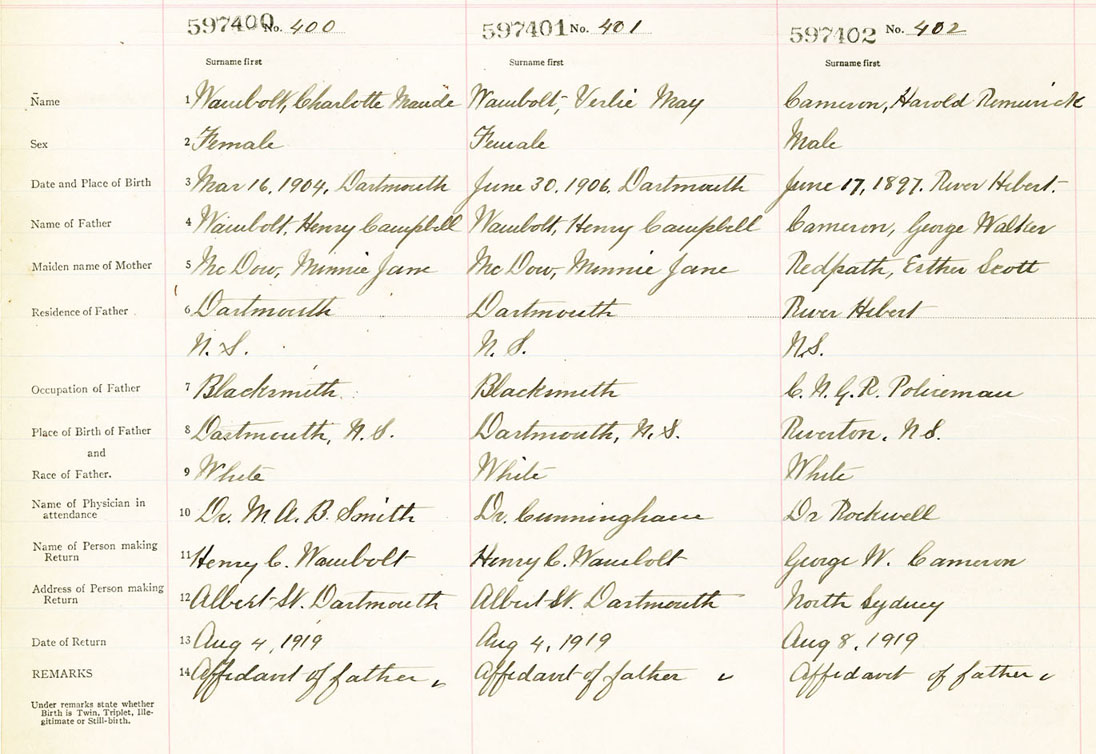 597400 No. 400 597401 No. 401 597402 No. 402
Surname first Surname first Surname first
Name 1 Wambolt, Charlotte Maude Wambolt, Verlie May Cameron, Harold
Sex 2 Female Female Male
Date and Place of Birth 3 Mar 16, 1904, Dartmouth June 30, 1906, Dartmouth June 17, 1897. River Hebert.
Name of Father 4 Wambolt, Henry Campbell Wambolt, Henry Campbell Cameron, George Walker
Maiden name of Mother 5 Mc Dow, Minnie Jane Mc Dow, Minnie Jane Redpath, Esther Scott
Residence of Father 6 Dartmouth Dartmouth River Hebert
N.S. N.S. N.S.
Occupation of Father 7 Blacksmith Blacksmith C.N.G.R. Policeman
Place of Birth of Father 8 Dartmouth, N.S. Dartmouth, N.S. Riverton, N.S.
and
Race of Father. 9 White White White
Name of Physician in
attendance 10 Dr. M.A.B. Smith Dr. Cunningham Dr Rockwell
Name of Person making
Return 11 Henry C. Wambolt Henry C. Wambolt George W. Cameron
Address of Person making
Return 12 Albert St. Dartmouth Albert St. Dartmouth North Sydney
Date of Return 13 Aug 4, 1919 Aug 4, 1919 Aug 8, 1919
REMARKS 14 Affidavit of father Affidavit of father Affidavit of father
Under remarks state whether
Birth is Twin, Triplet, Ille-
gitimate or Still-birth.